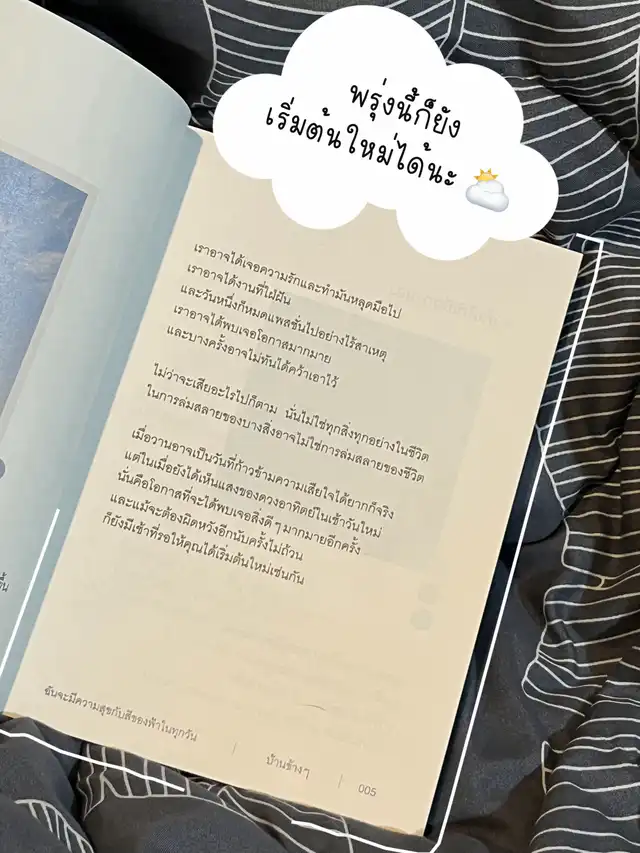 พรุ่งนี้ก็ยัง
เริ่มต้นใหม่ได้นะ
เราอาจได้เจอความรักและทำมันหลุดมือไป
เราอาจได้งานที่ใฝ่ฝัน
และวันหนึ่งก็หมดแพสชั่นไปอย่างไร้สาเหตุ
เราอาจได้พบเจอโอกาสมากมาย
และบางครั้งอาจไม่ทันได้คว้าเอาไว้
ไม่ว่าจะเสียอะไรไปก็ตาม นั่นไม่ใช่ทุกสิ่งทุกอย่างในชีวิต
ในการล่มสลายของบางสิ่งอาจไม่ใช่การล่มสลายของชีวิต
เมื่อวานอาจเป็นวันที่ก้าวข้ามความเสียใจได้ยากก็จริง
แต่ในเมื่อยังได้เห็นแสงของดวงอาทิตย์ในเช้าวันใหม่
นั่นคือโอกาสที่จะได้พบเจอสิ่งดีๆ มากมายอีกครั้ง
และแม้จะต้องผิดหวังอีกนับครั้งไม่ถ้วน
ก็ยังมีเช้าที่รอให้คุณได้เริ่มต้นใหม่เช่นกัน
ฉันจะมีความสุขกับสีของฟ้าในทุกวัน | บ้านข้างๆ | 005